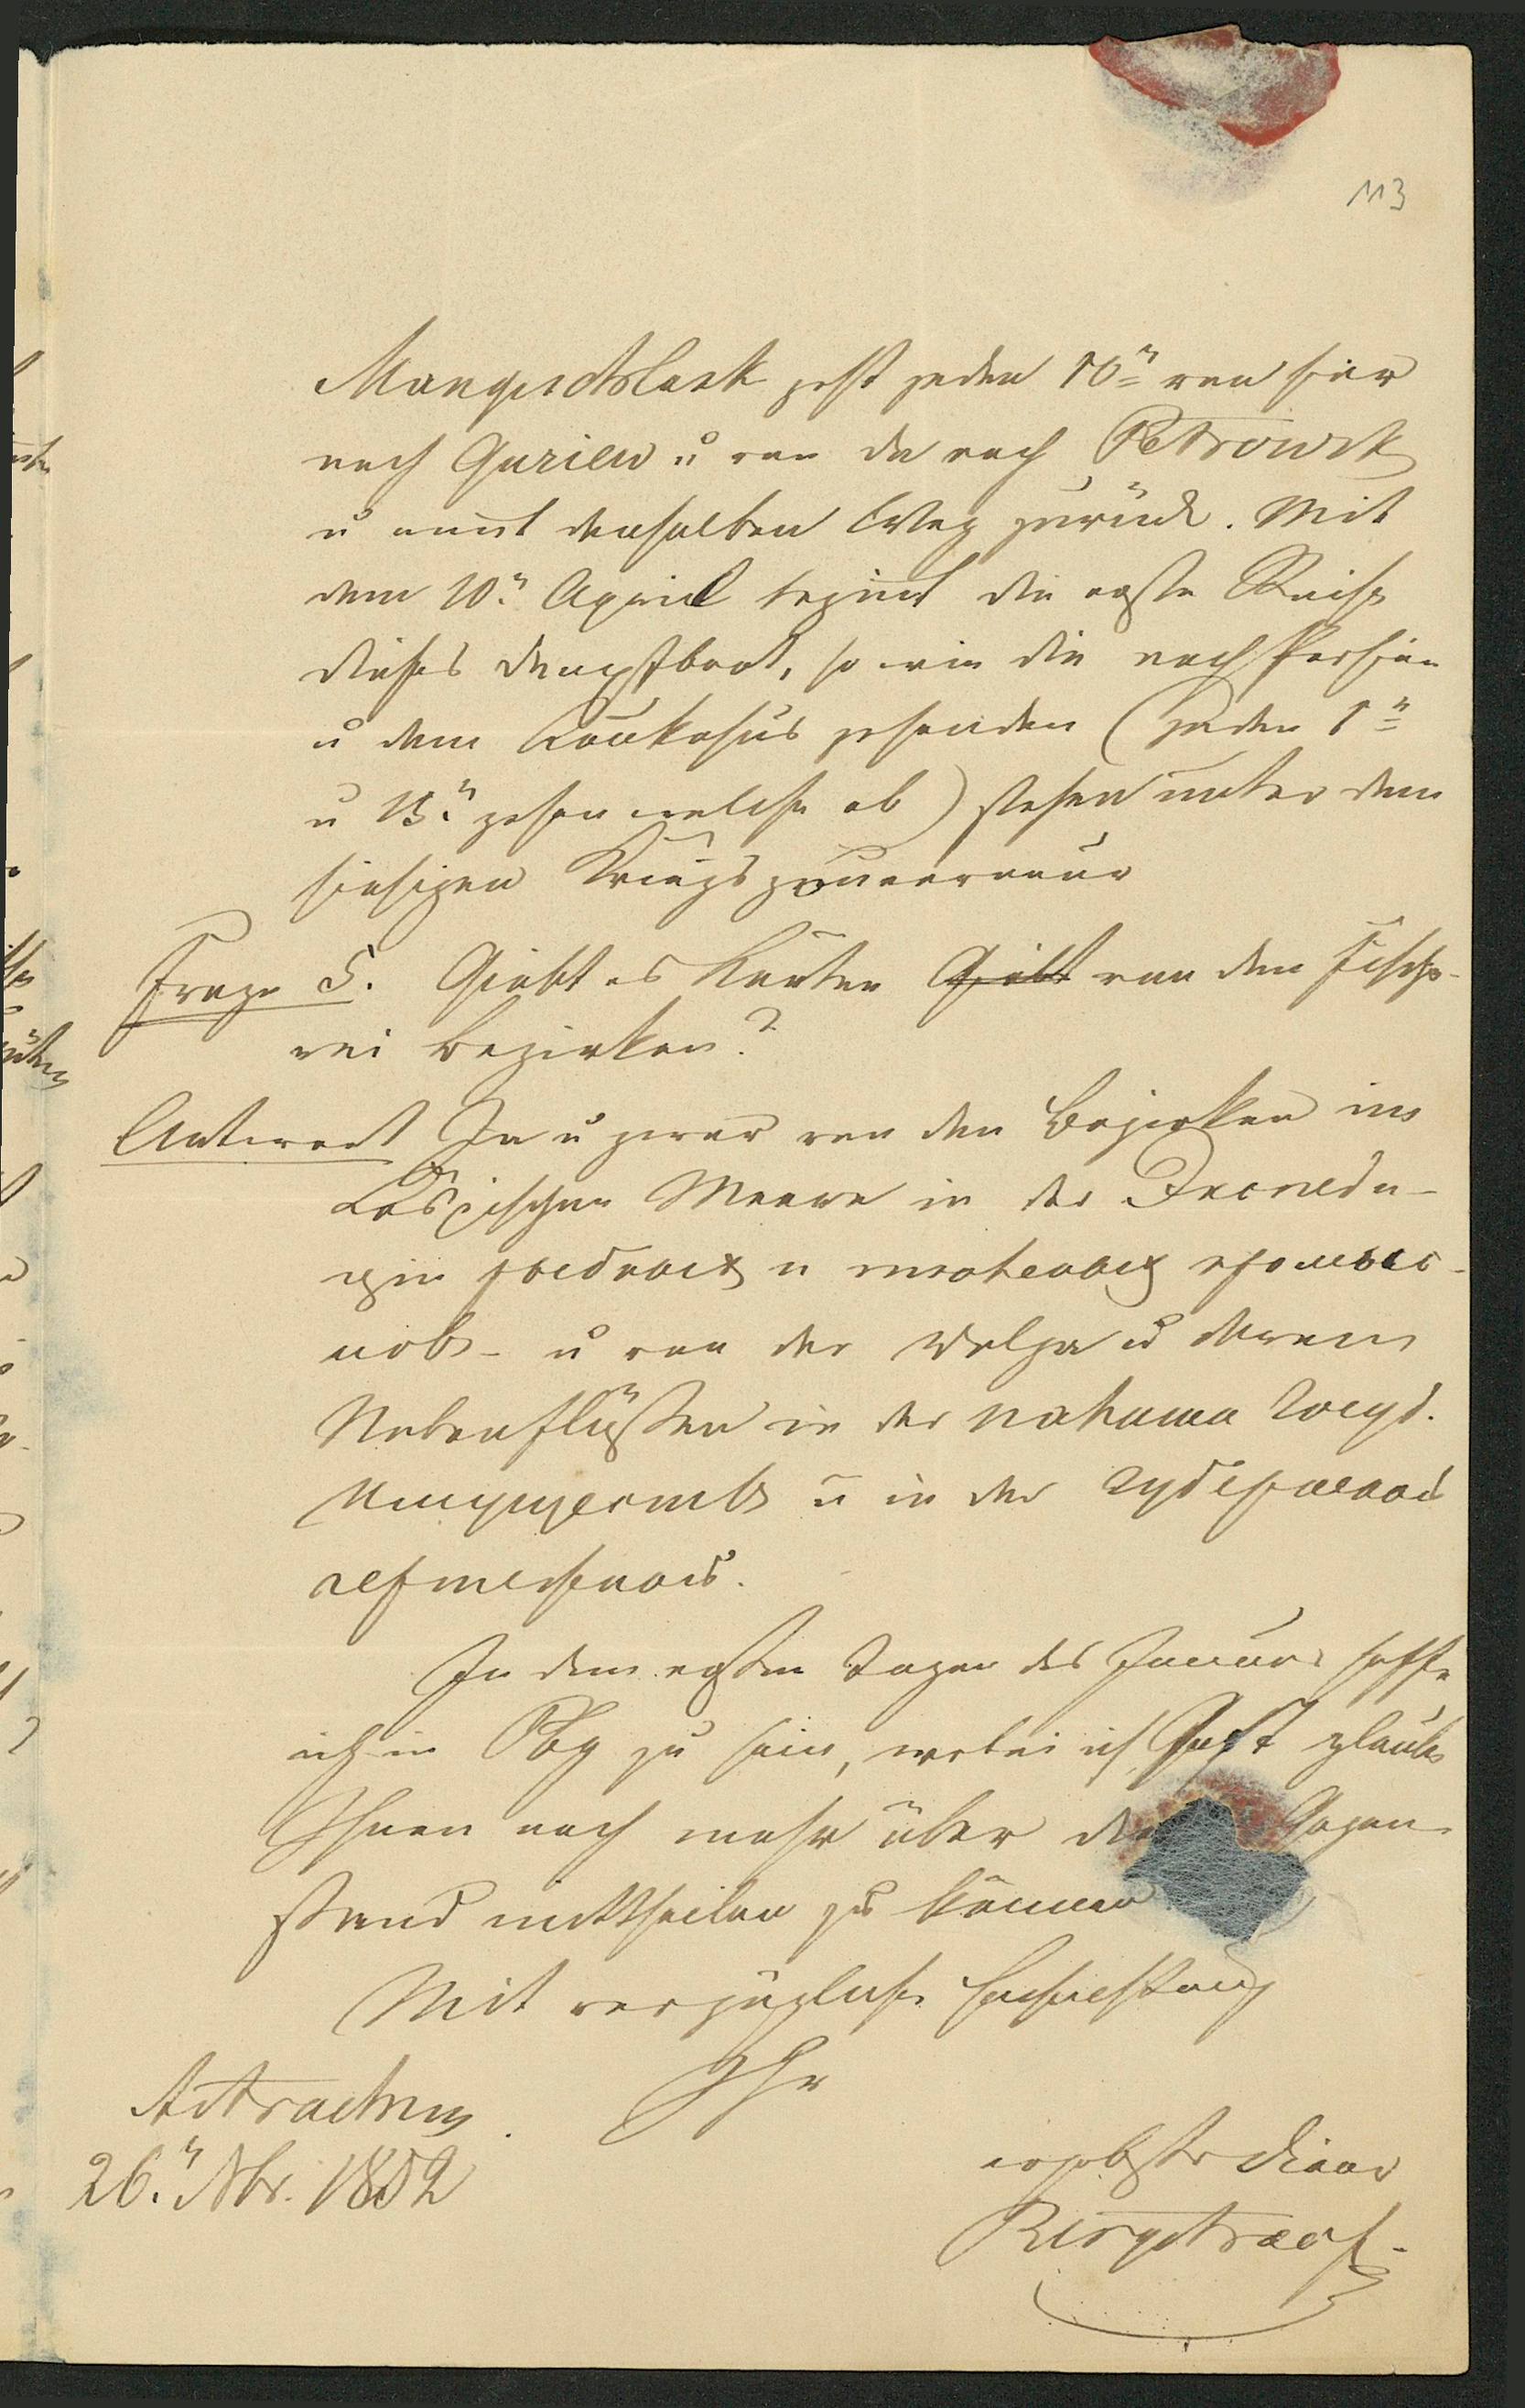 113
Mangischlask geht jeden 10n von hier
nach Guriew u von da nach Petrowsk
u nimt denselben Weg zurück. Mit
dem 10n April begint die erste Reise
dieses Dampfboot, so wie die nach Persien
u dem Kaukasus gehenden (jeden 1n
u 15n gehen welche ab) stehen unter dem
hiesigen Kriegsgouverneur
Frage 5. Giebt es Karten Giebt von den Fische-
rei Bezirken?
Antwort Ja u zwar von den Bezirken im
Caspischen Meere in der Экспеди-
ции рыбных и тюленьих промыс-
ловъ - u von der Wolga u deren
Nebenflüssen in der палата Госуд.
имуществъ u in der губернской
чертежной.
In den ersten Tagen des Januar hoffe
ich in Pbg zu sein, wobei ich fest glaube
Ihnen noch mehr über Gegen-
stand mittheilen zu können
Mit vorzüglicher Hochachtung
Ihr
Astrachan
26n Nbr. 1852
ergebenster Diener
Bergstraess.